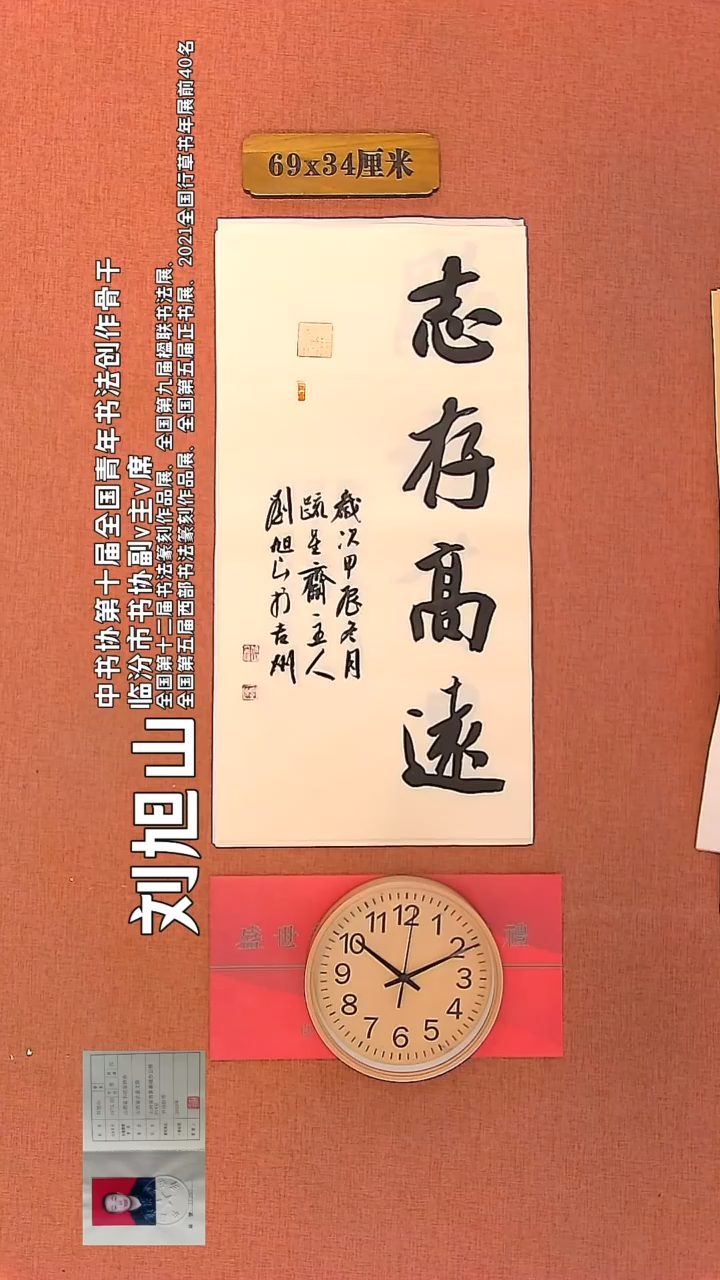 69x34厘米
志存高遠
歲次甲辰冬月
疏星齋主人
劉旭山於吉州
刘旭山
中书协第十届全国青年书法创作骨干
临汾市书协副v主v席
全国第十二届书法篆刻作品展、全国第九届楹联书法展、
全国第五届西部书法篆刻作品展、全国第五届正书展、2021全国行草书年展前40名
12
1
2
3
4
5
6
7
8
9
10
11